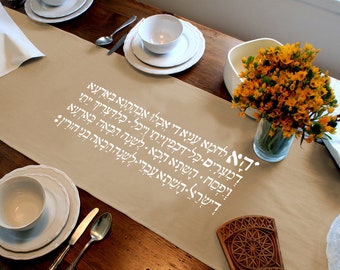 הא לחמא עניא די אכלו אבהתנא בארעא
דמצרים. כל דכפין ייתי ויכל. כל דצריך ייתי
ויפסח. השתא הכא. לשנה הבאה בארעא
דישראל. השתא עבדי. לשנה הבאה בני חורין: